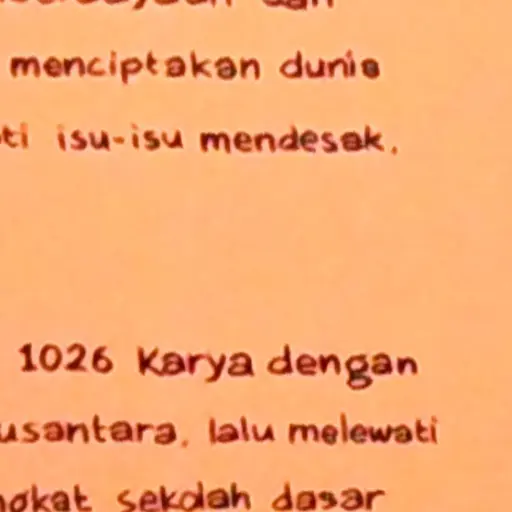 dan
menciptakan dunia
ti isu-isu mendesak.
1026 Karya dengan
usantara. lalu melewati
gkat sekolah dasar